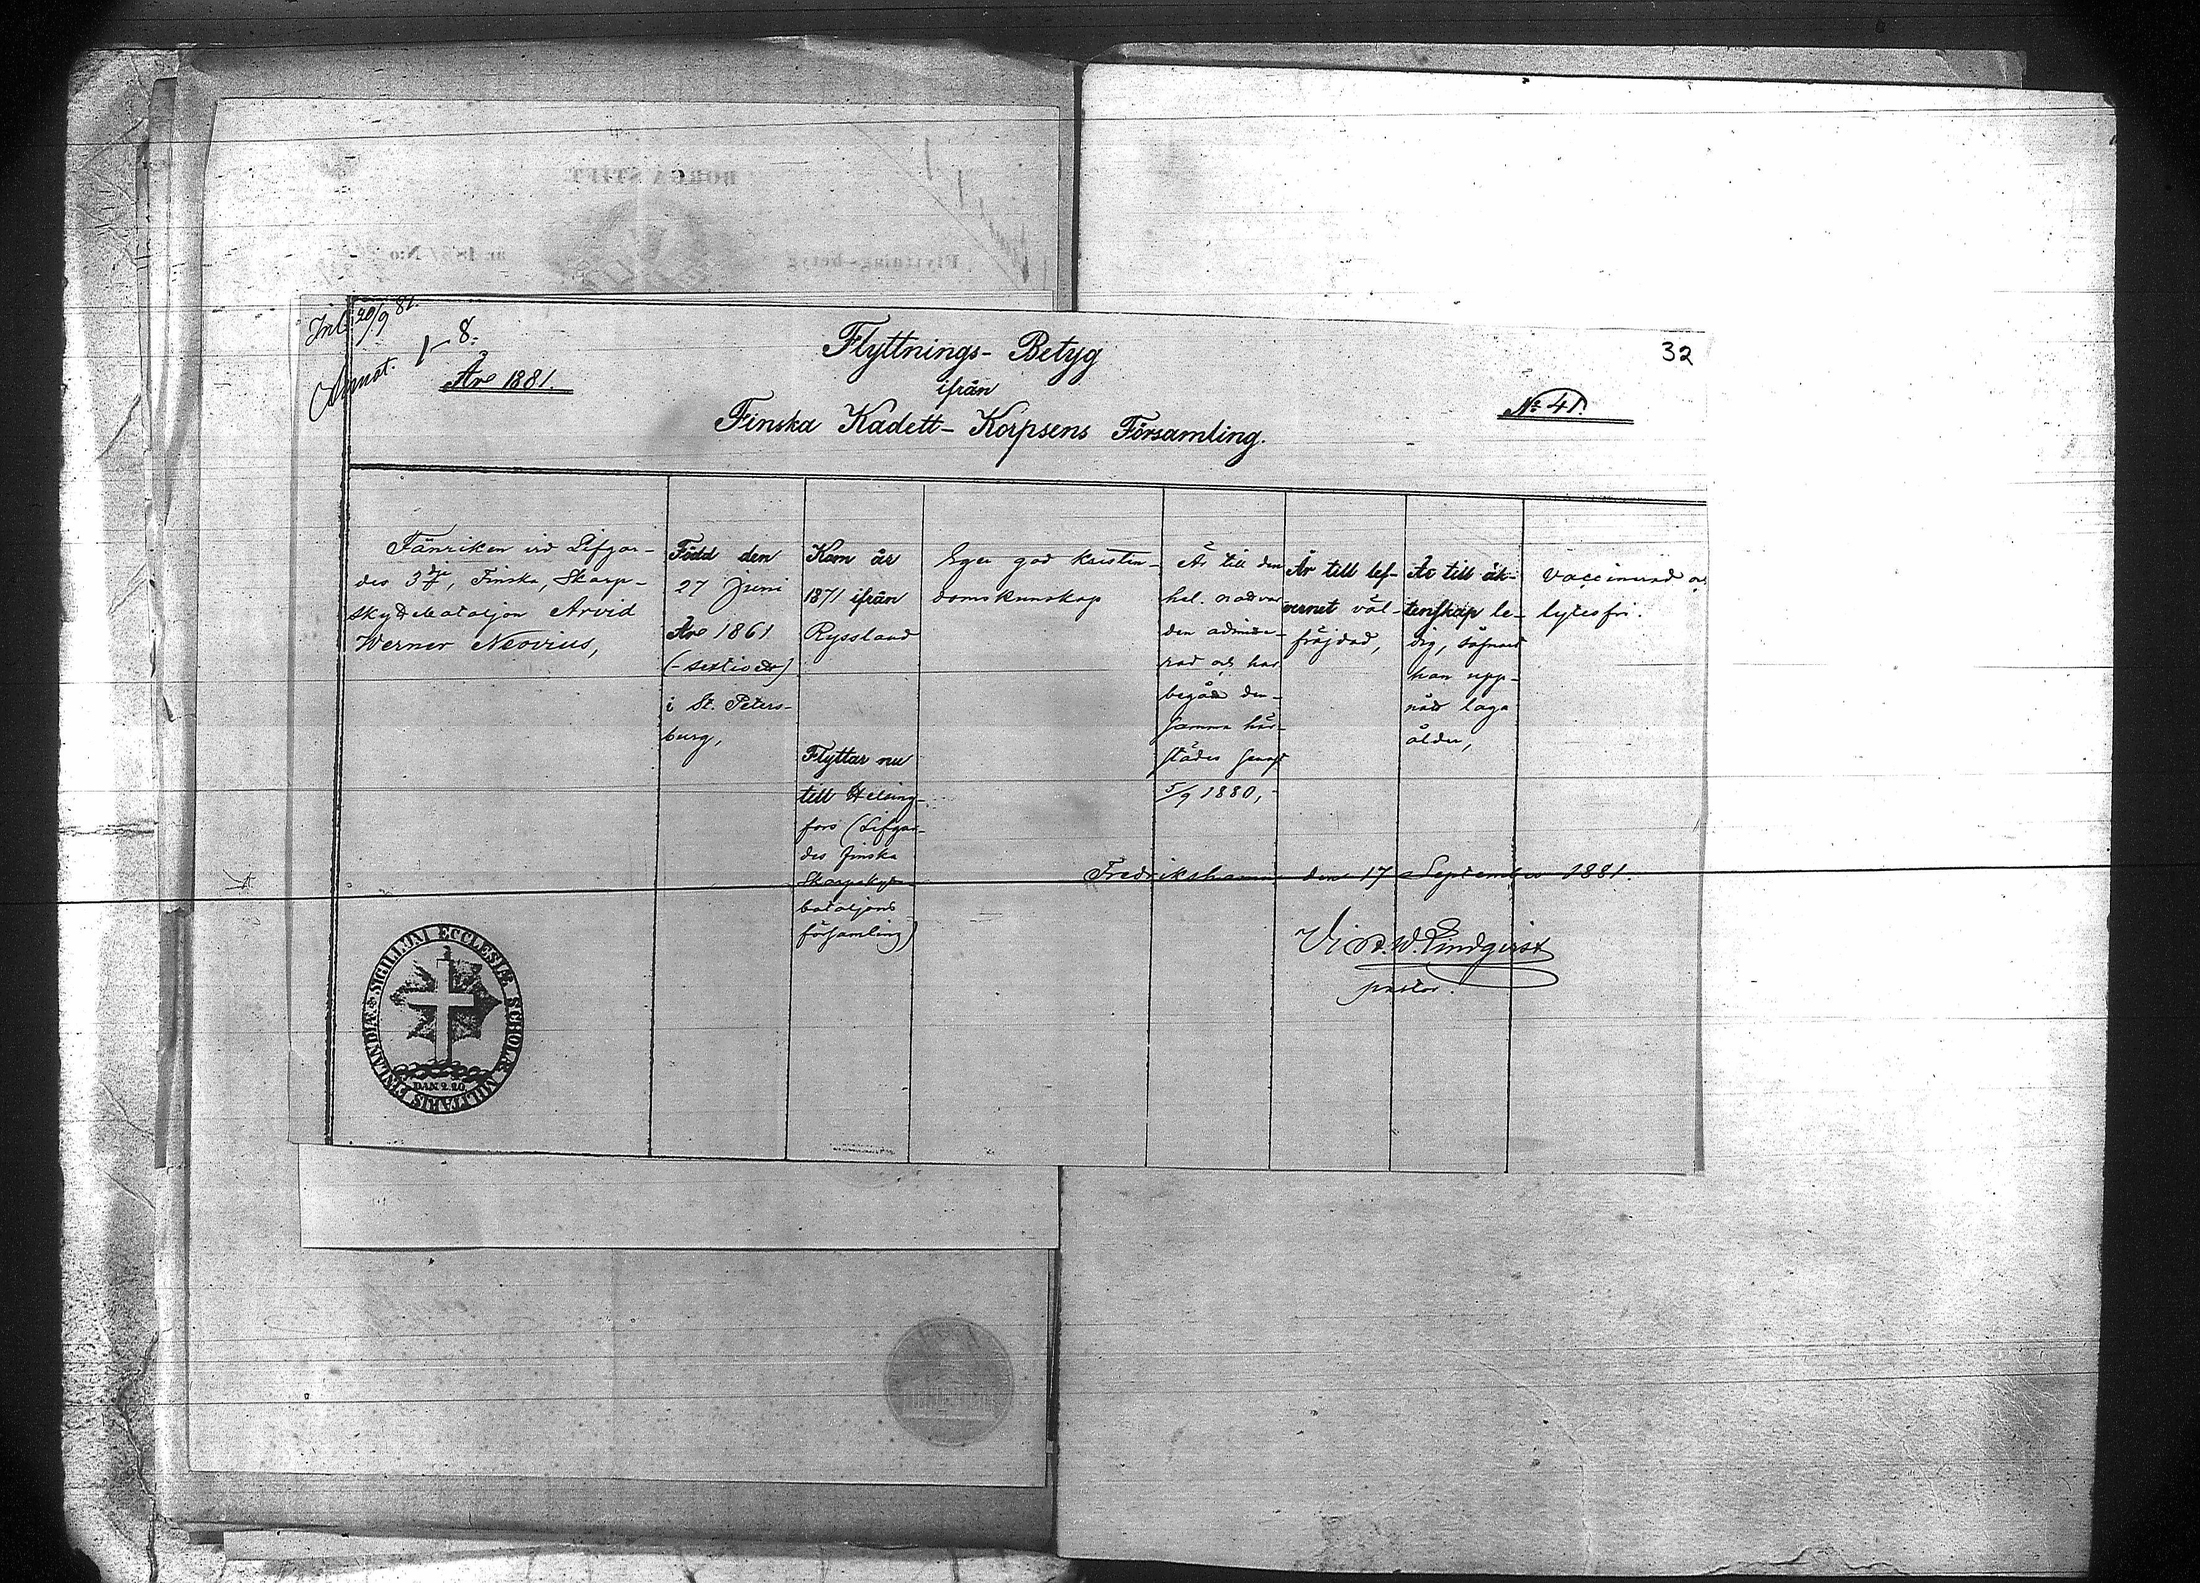 Inl. 20/9 81.
Annot.
1-8.
År 1881.
Flyttnings-Betyg
ifrån
Finska Kadett-Korpsens Församling.
32
No 41.
Fänriken vid Lifgar-
des 3dje, Finska, Skarp-
skyttebataljon Arvid
Werner Neovius,
Född den
27 Juni
År 1861
(-sextioett)
i St. Peters-
burg,
Kom år
1871 ifrån
Ryssland
Flyttar nu
till Helsing-
fors (Lifgar-
des finska
Skarpskytte-
bataljons
församling)
Eger god kristen-
domskunskap
Är till den
hel. nattvar
den admitte-
rad och har
begått den-
samma här-
städes senast
5/9 1880,-
Är till lef-
vernet väl-
fräjdad,
Är till äk-
tenskap le-
dig, såframt
han upp-
nått laga
ålder,
Vaccinerad och
lytesfri.
Fredrikshamn den 17 September 1881.
Lindqvist
pastor.
SIGILLUM ECCLESIÆ SCHOLÆ MILITARIS FINLANDIÆ
DAN. 2. 20.
BORGÅ STIFT
Flyttnings-betyg
år 188 / N:o